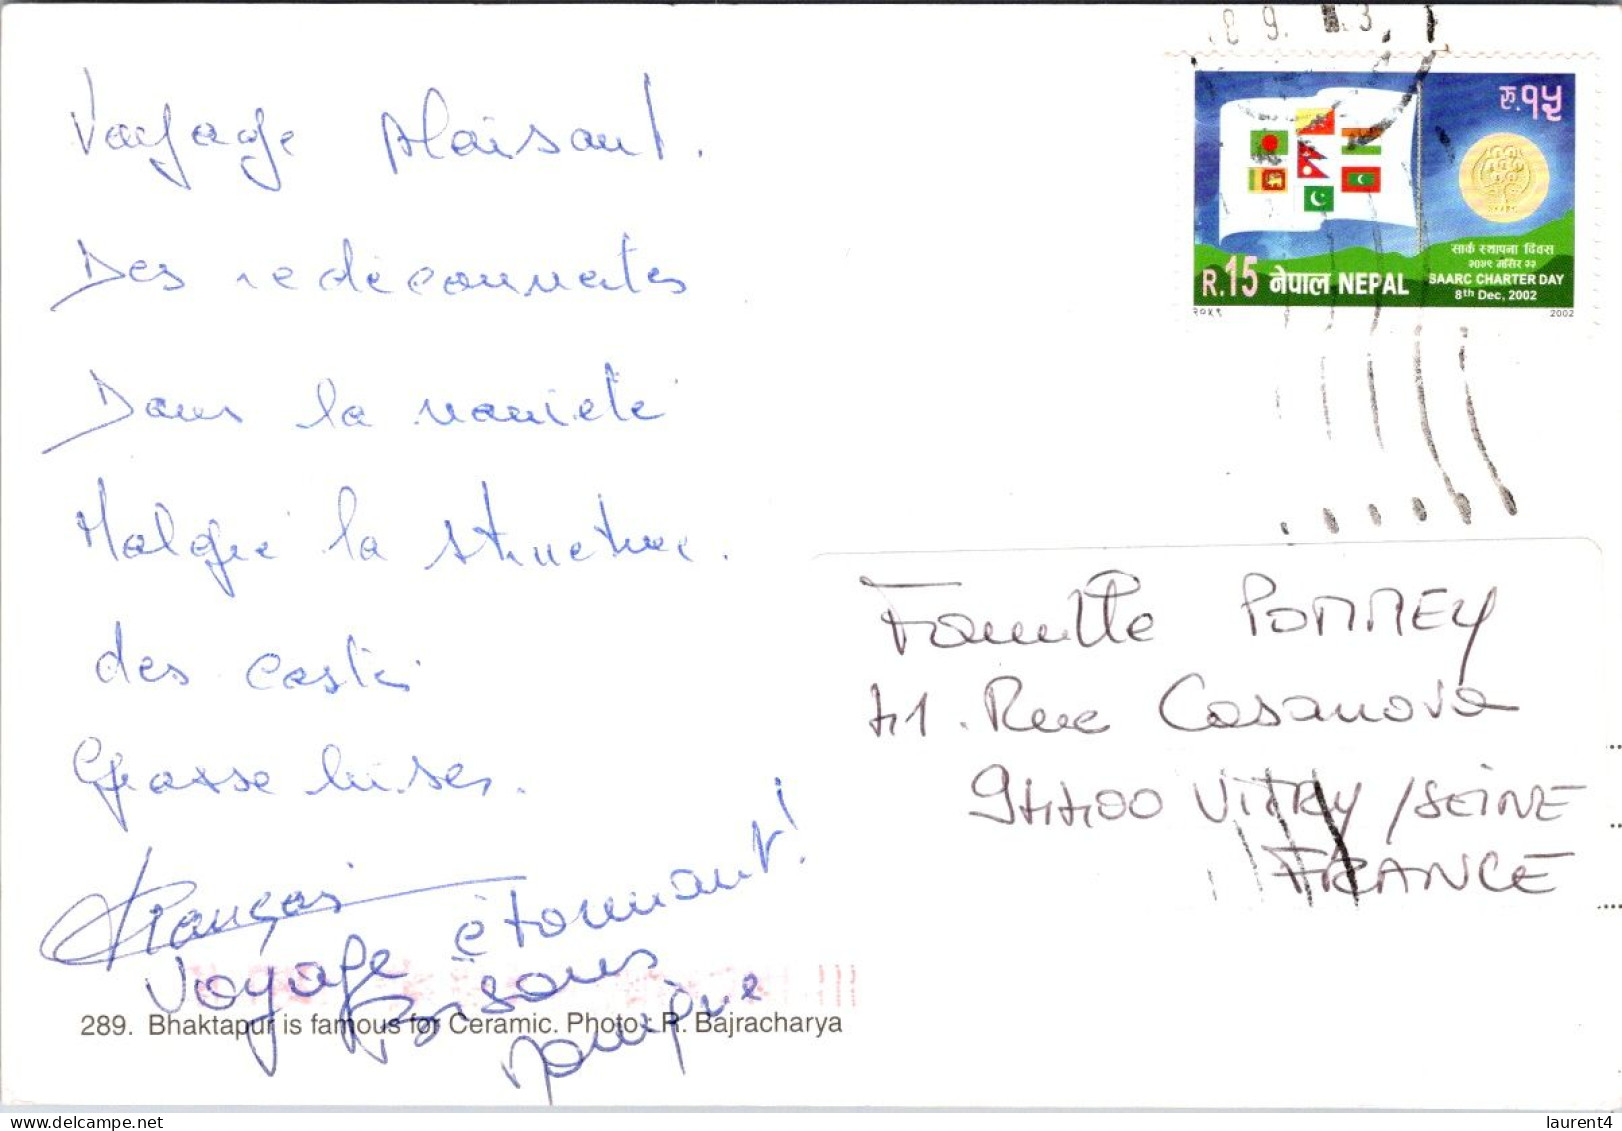 Voyage plaisant.
Des redécouvertes
Dans la variété
Malgré la structure.
des castes
Grosse bises.
François
Voyage étonnant!
Bisous
289. Bhaktapur is famous for Ceramic. Photo: R. Bajracharya
रु.१५
सार्क स्थापना दिवस
२०५९ मंसिर २२
SAARC CHARTER DAY
8th Dec, 2002
R.15 नेपाल NEPAL
२०५९ 2002
Famille POMMEY
41. Rue Casanova
94400 VITRY /SEINE
FRANCE
laurent4